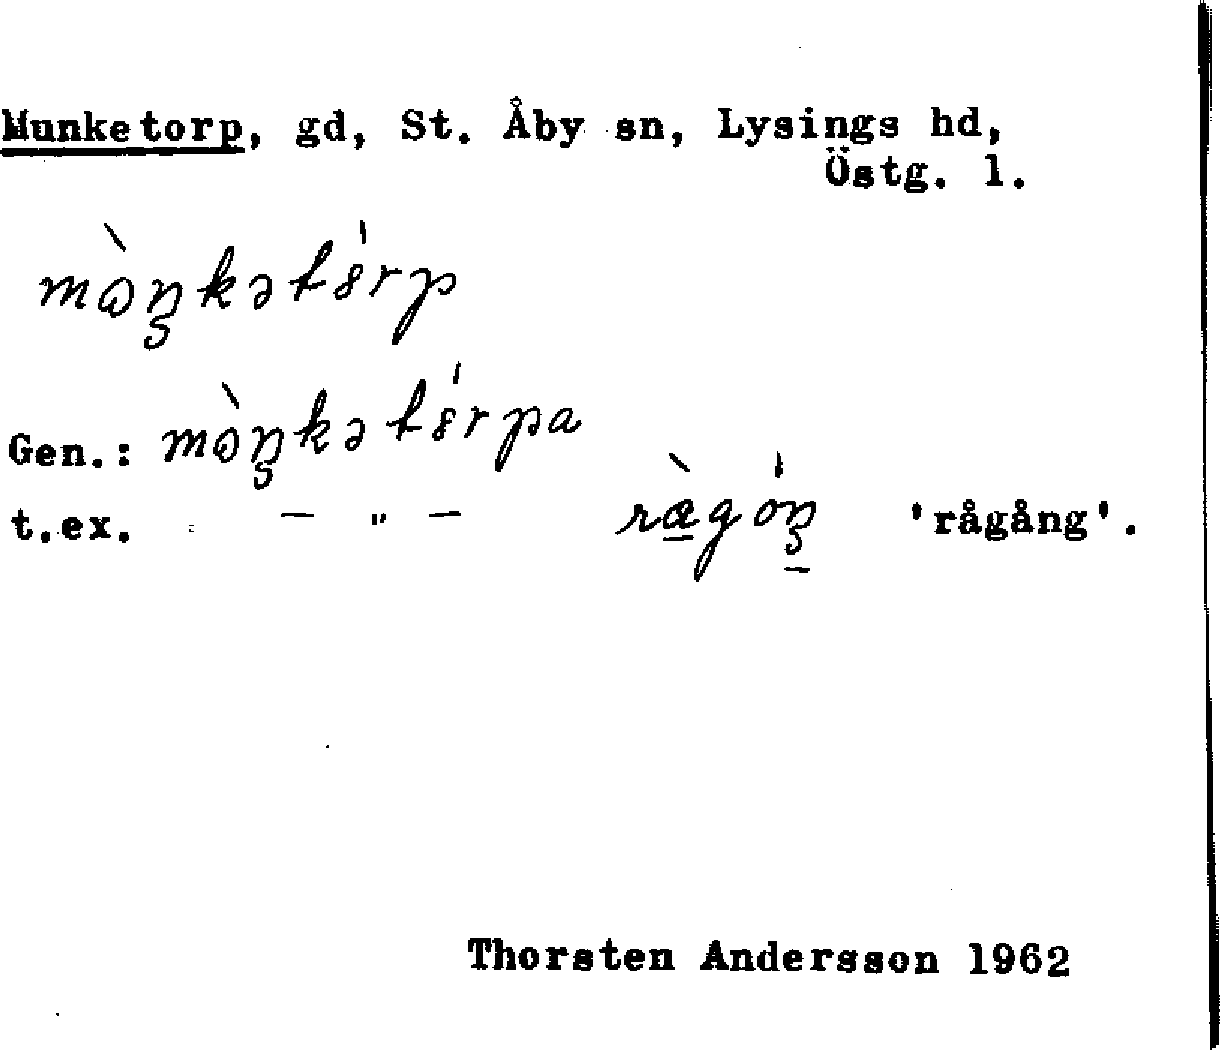 Munketorp, gd, St. Åby sn, Lysings hd,
Östg. l.
mò̀ŋkətó̍rp
Gen.: mò̀ŋkətó̍rpa
t.ex. – " – ràgóŋ 'rågång'.
Thorsten Andersson 1962